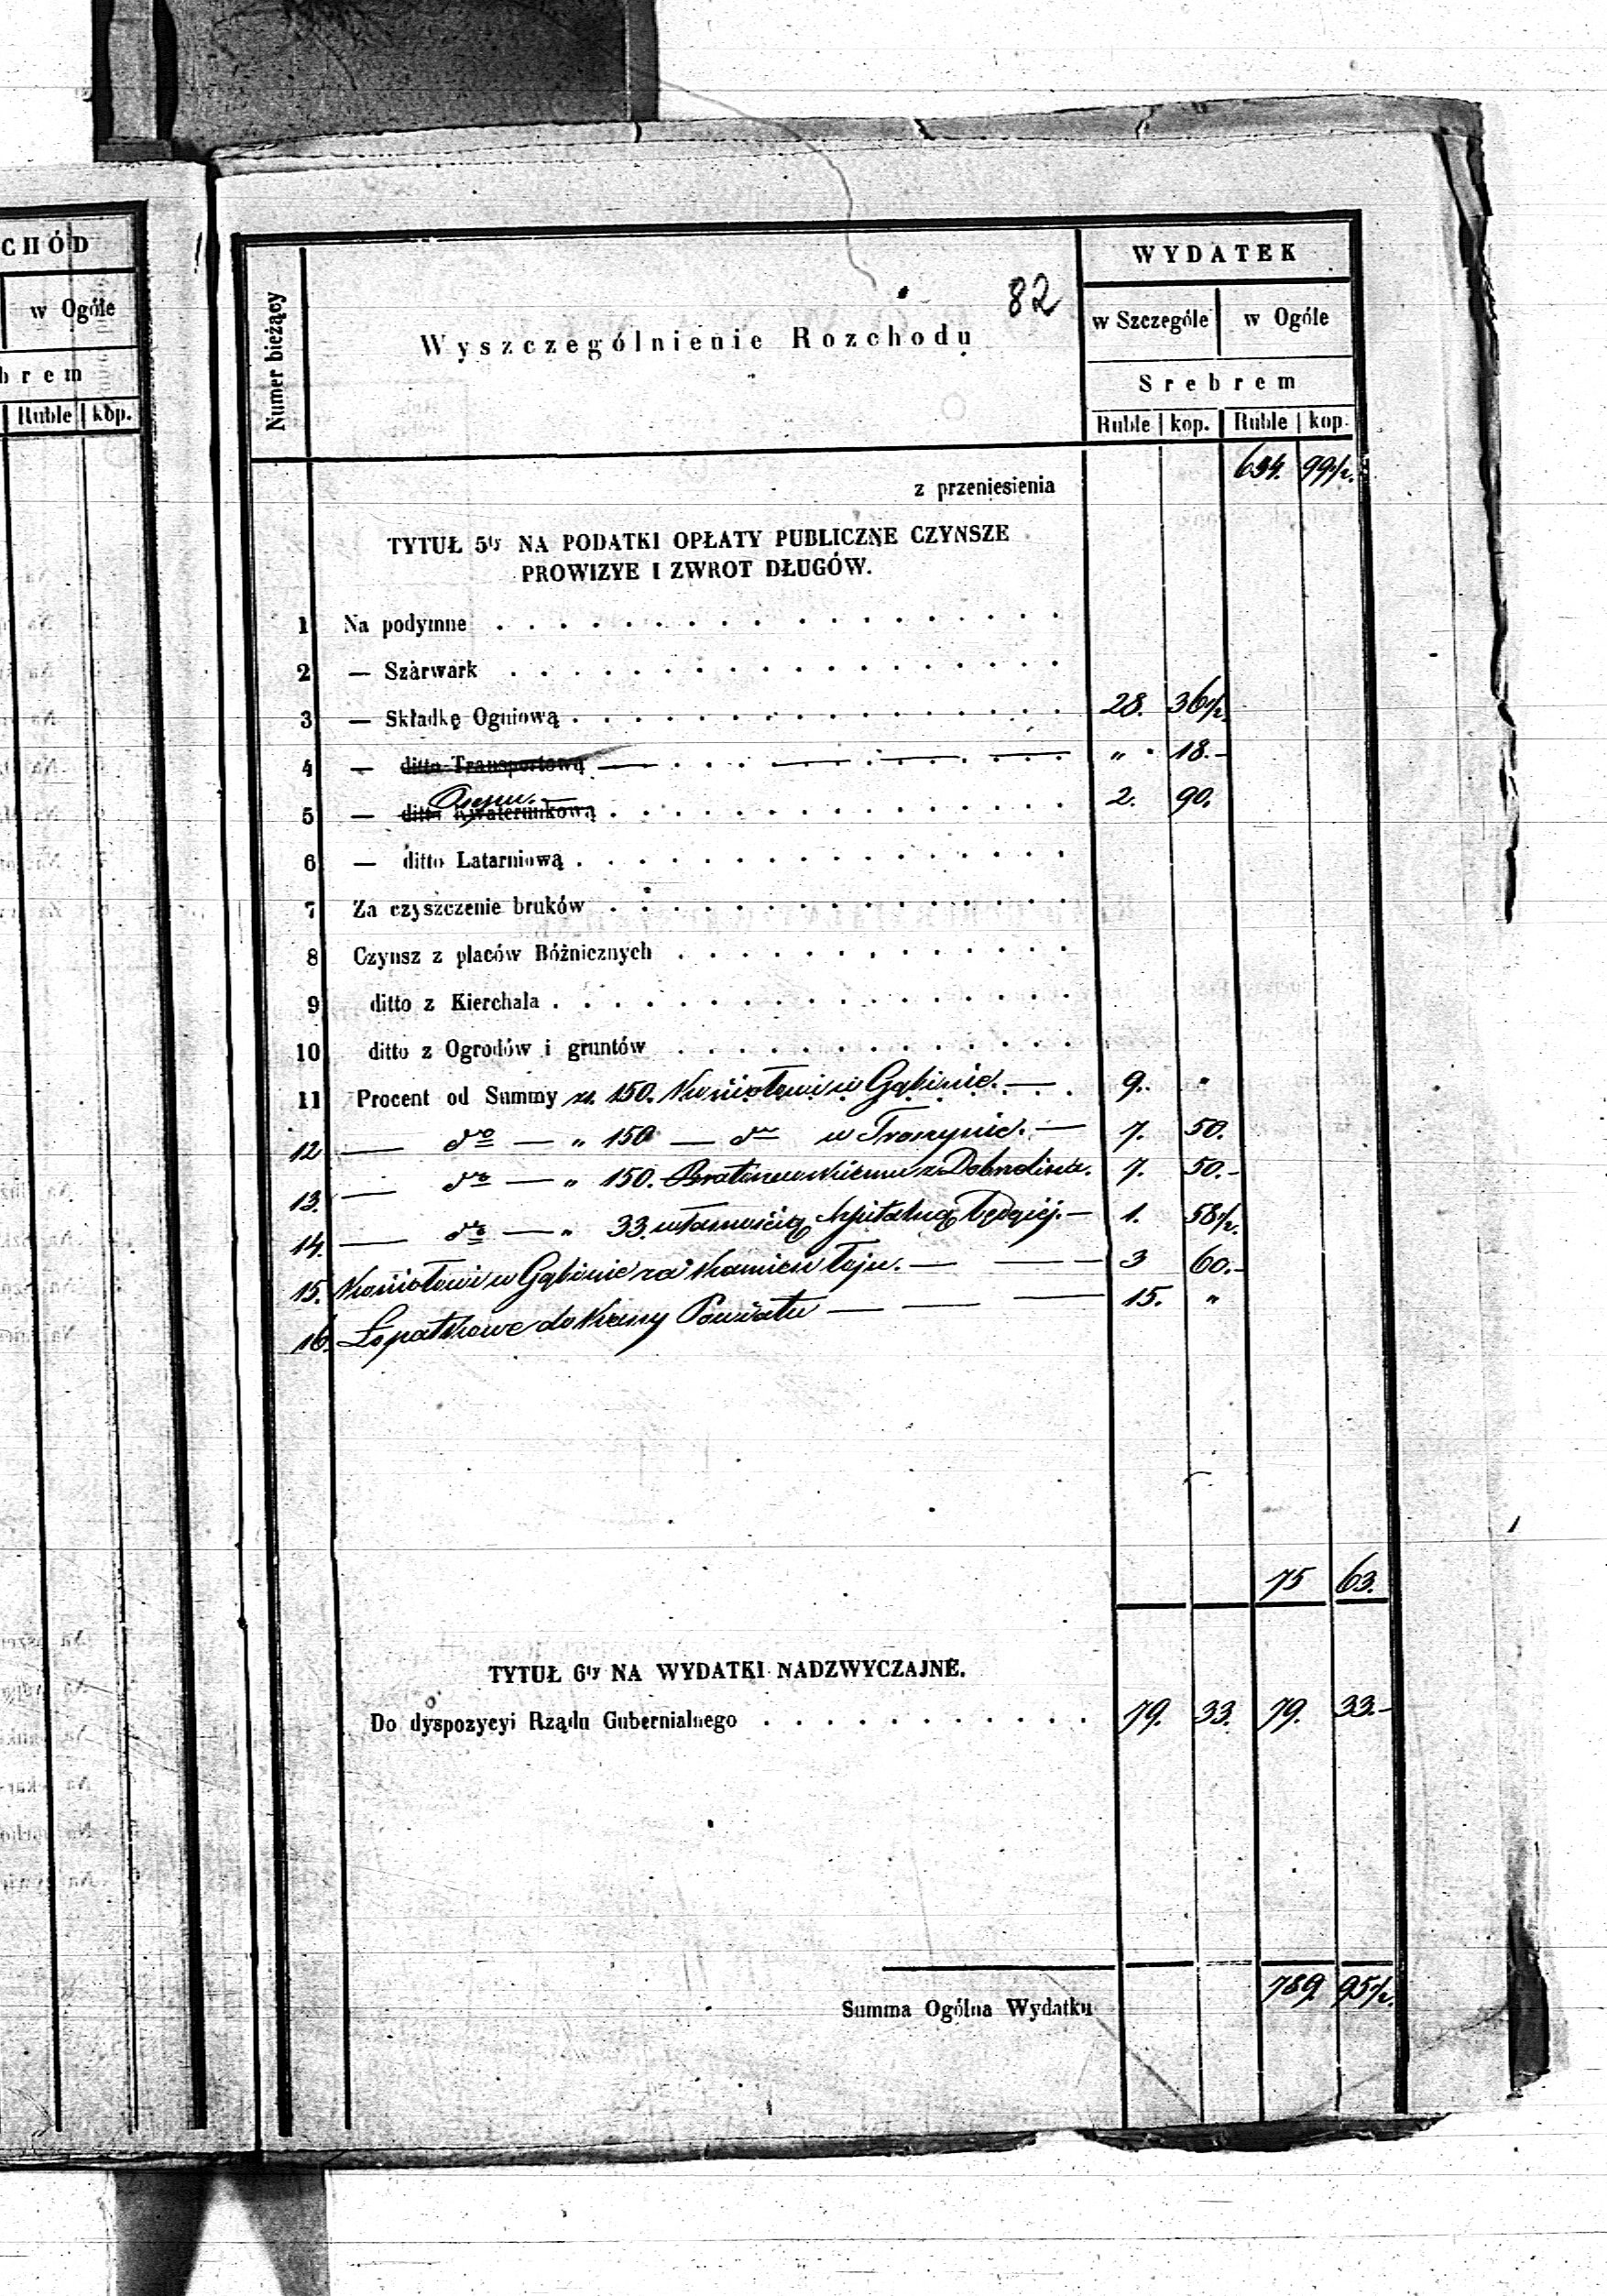 CHÓD
w Ogóle
brem
Ruble kop.
82
Numer bieżący
Wyszczególnienie Rozchodu
WYDATEK
w Szczególe w Ogóle
Srebrem
Ruble kop. Ruble kop.
z przeniesienia 634. 99½.
TYTUŁ 5ty NA PODATKI OPŁATY PUBLICZNE CZYNSZE
PROWIZYE I ZWROT DŁUGÓW.
1 Na podymne
2 — Szarwark
3 — Składkę Ogniową 28. 36½.
4 — ditto Transportową — — — „ 18.-
5 — ditto Kwaterunkową 2. 90.
6 — ditto Latarniową
7 Za czyszczenie bruków
8 Czynsz z placów Bóżnicznych
9 ditto z Kierchala
10 ditto z Ogrodów i gruntów
11 Procent od Summy zł. 150. Kościołowi w Gąbinie. — 9. „
12 — do — „ 150 — do w Troszynie. — 7. 50.
13. — do — „ 150. z Dobrolina. 7. 50.-
14. — do — „ 33. własnością Szpitalną będącej. — 1. 58½.
15. Kościołowi w Gąbinie za kamień łoju. — — — 3 60.-
16. Łopatkowe do Kassy Powiatu — — — 15. „
75 63.
TYTUŁ 6ty NA WYDATKI NADZWYCZAJNE.
Do dyspozycyi Rządu Gubernialnego 79. 33. 79. 33.-
Summa Ogólna Wydatku 789. 95½.